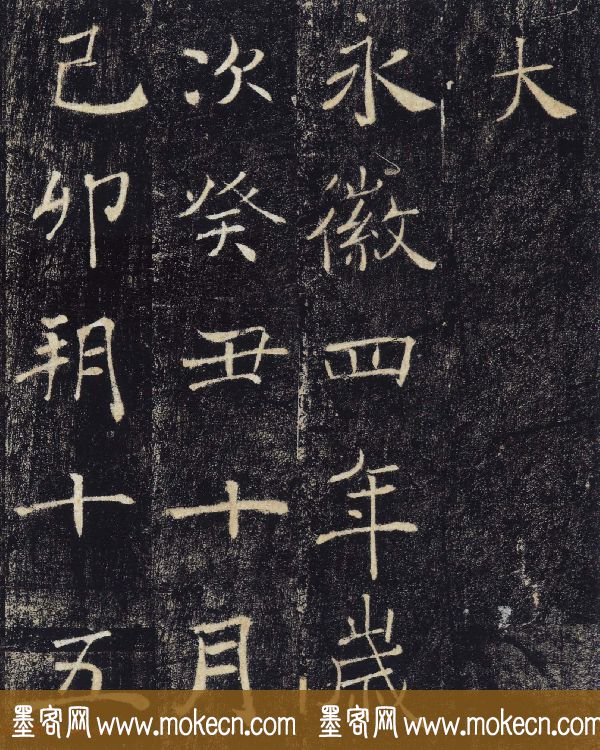 大
永徽四年歲
次癸丑十月
己卯朔十五
墨客网 www.mokecn.com 墨客网 www.mokecn.com